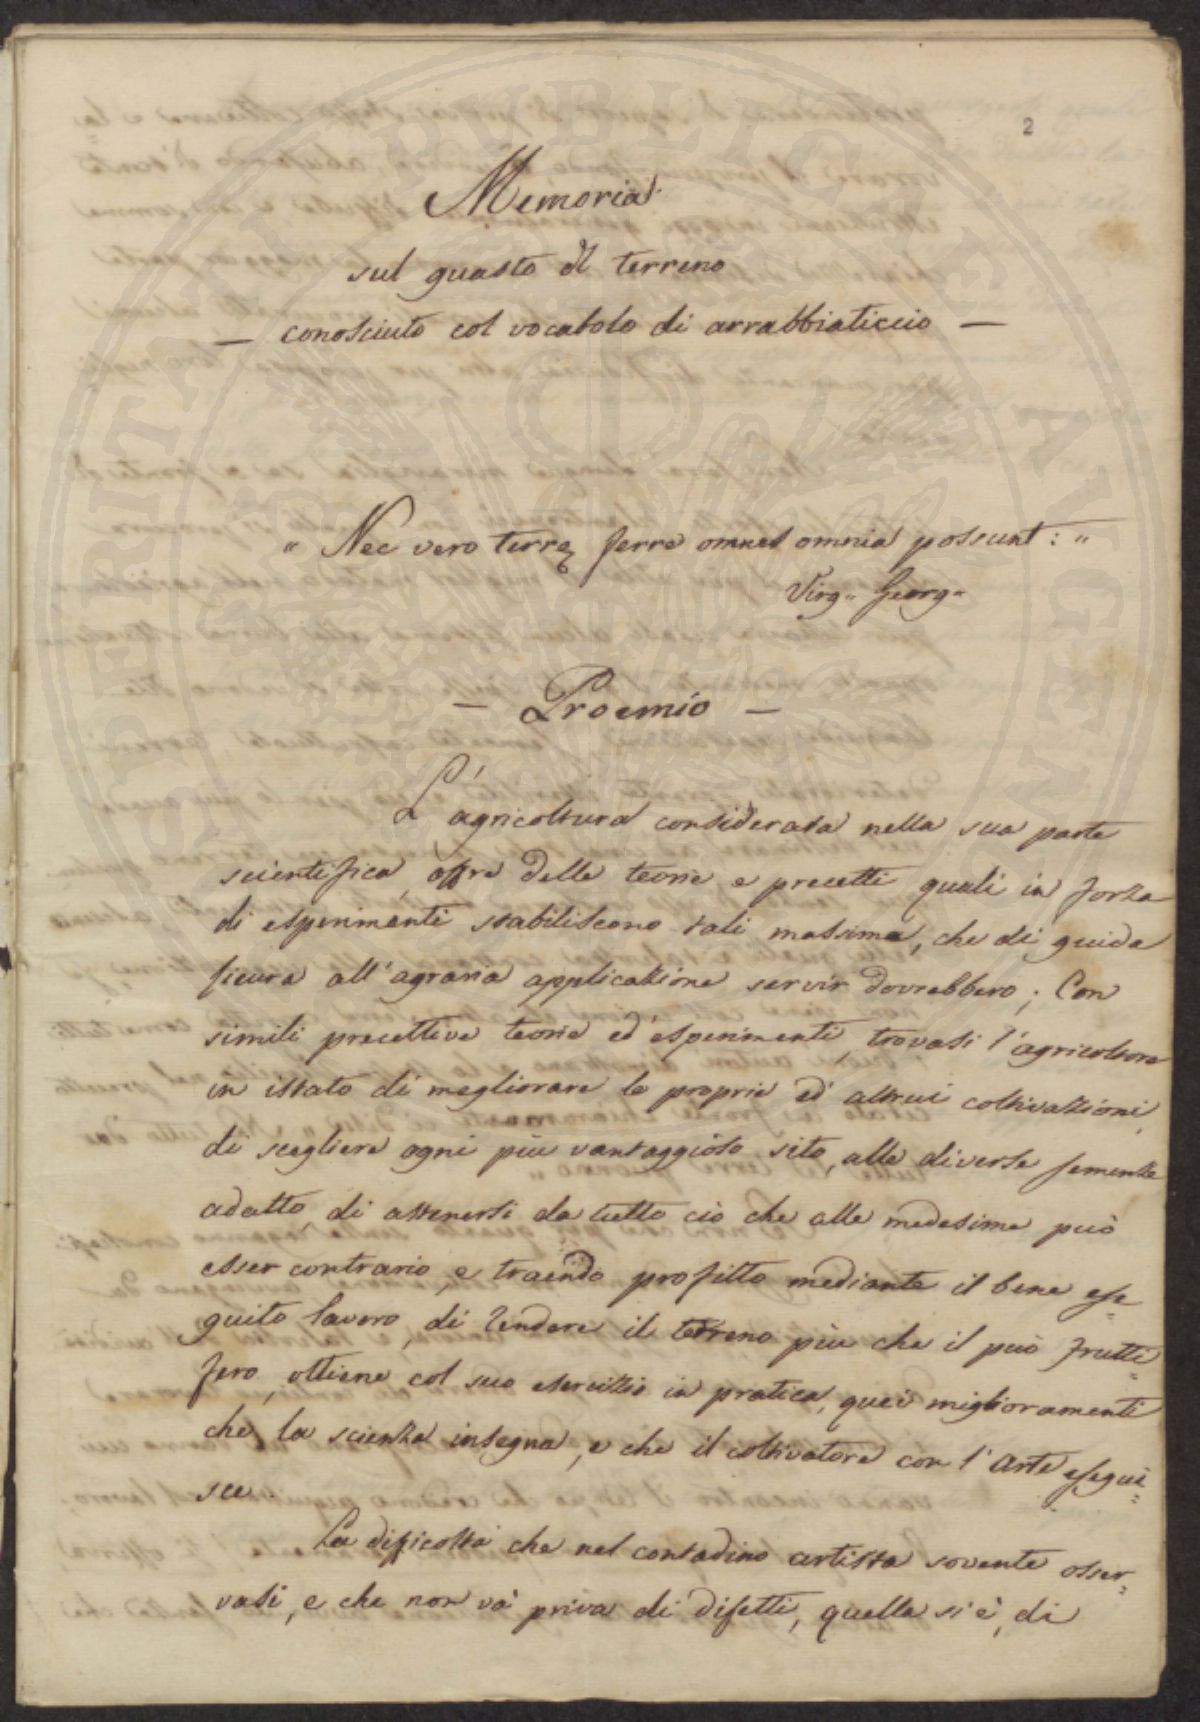 2
Memoria
sul guasto del terreno
— conosciuto col vocabolo di arrabbiaticcio —
" Nec vero terrę ferre omnes omnia possunt: "
Virg." Georg."
— Proemio —
L'agricoltura considerata nella sua parte
scientifica, offre delle teorie e precetti quali in forza
di esperimenti stabiliscono tali massime, che di guida
sicura all'agraria applicazione servir dovrebbero; Con
simili precettive teorie ed'esperimenti, trovasi l'agricoltore
in istato di megliorare le proprie ed' altrui coltivazioni,
di scegliere ogni più vantaggioso sito, alle diverse semente
adatto, di astenersi da tutto ciò che alle medesime può
esser contrario, e traendo profitto mediante il bene ese=
guito lavoro, di rendere il terreno più che il può frutti=
fero, ottiene col suo esercizio in pratica, quei miglioramenti
che la scienza insegna, e che il coltivatore con l'arte esegui=
sce.
La dificoltà che nel contadino artista sovente osser=
vasi, e che non và priva di difetti, quella si è, di
SPERITATI PUBLICAE AVGEN